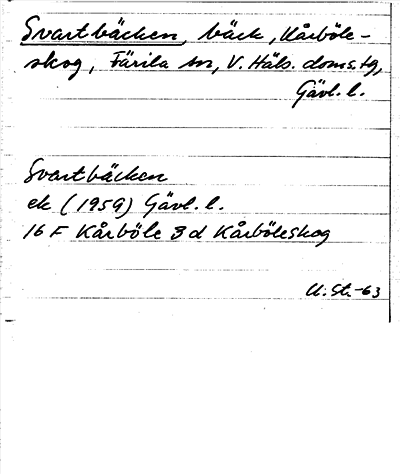 Svartbäcken, bäck, Kårböle-
skog, Färila sn, V. Häls. doms. tg,
Gävl. l.
Svartbäcken
ek (1959) Gävl. l.
16 F Kårböle 3 d Kårböleskog
U. St. -63